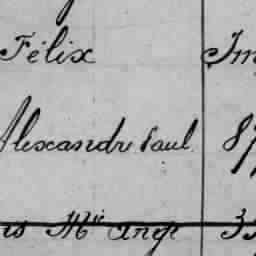 Félix Im
Alexandre Paul 87
is Mie Ange 3